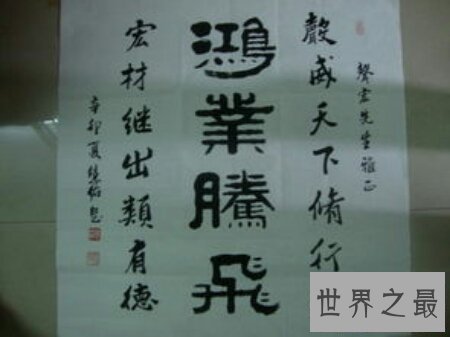 聲宏先生雅正
聲威天下脩行
鴻業騰飛
宏材继出類有德
辛卯夏
世界之最